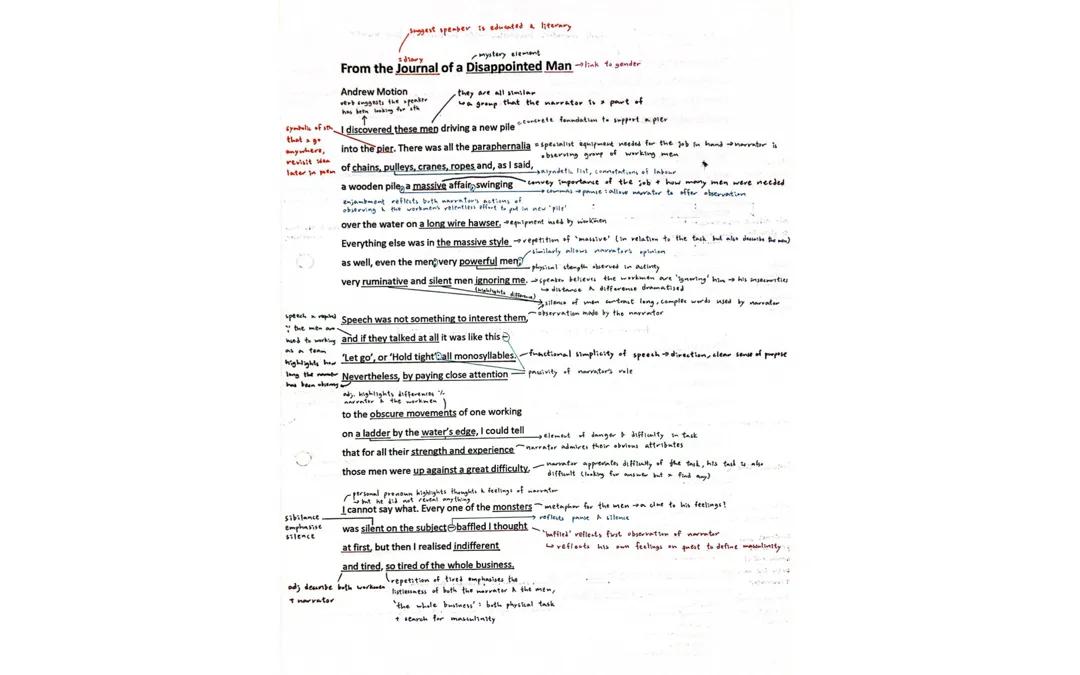 suggest speaker is educated & literary
= diary
mystery element
From the Journal of a Disappointed Man → link to gender
Andrew Motion
they are all similar
verb suggests the speaker
↳ a group that the narrator is x part of
has been looking for sth
I discovered these men driving a new pile = concrete foundation to support a pier
symbolic of sth
that x go
anywhere,
revisit idea
later in poem
into the pier. There was all the paraphernalia = specialist equipment needed for the job in hand → narrator is
observing group of working men
of chains, pulleys, cranes, ropes and, as I said, → asyndetic list, connotations of labour
a wooden pile, a massive affair, swinging convey importance of the job + how many men were needed
→ commas → pause : allow narrator to offer observation
enjambment reflects both narrator's actions of
observing & the workmen's relentless effort to put in new 'pile'
over the water on a long wire hawser. → equipment used by workmen
Everything else was in the massive style → repetition of 'massive' (in relation to the task but also describe the men)
similarly allows narrator's opinion
as well, even the men, very powerful men,
physical strength observed in activity
very ruminative and silent men ignoring me. → speaker believes the workmen are 'ignoring' him → his insecurities
↳ distance & difference dramatised
(highlights difference)
silence of men contrast long, complex words used by narrator
observation made by the narrator
Speech was not something to interest them,
speech x rapid
∵ the men are
used to working
as a team
highlights how
long the narrator
has been observing
and if they talked at all it was like this –
'Let go', or 'Hold tight': all monosyllables. functional simplicity of speech → direction, clear sense of purpose
Nevertheless, by paying close attention passivity of narrator's role
adj. highlights differences
narrator & the workmen
to the obscure movements of one working
on a ladder by the water's edge, I could tell → element of danger & difficulty in task
that for all their strength and experience narrator admires their obvious attributes
those men were up against a great difficulty. narrator appreciates difficulty of the task, his task is also
difficult (looking for answer but x find any)
personal pronoun highlights thoughts & feelings of narrator
→ but he did not reveal anything
I cannot say what. Every one of the monsters metaphor for the men → a clue to his feelings?
sibilance
emphasise
silence
→ reflects pause & silence
was silent on the subject – baffled I thought
'baffled' reflects first observation of narrator
at first, but then I realised indifferent ↳ reflects his own feelings on quest to define masculinity
and tired, so tired of the whole business.
adj describe both workmen
+ narrator
repetition of tired emphasises the
listlessness of both the narrator & the men,
'the whole business' : both physical task
+ search for masculinity